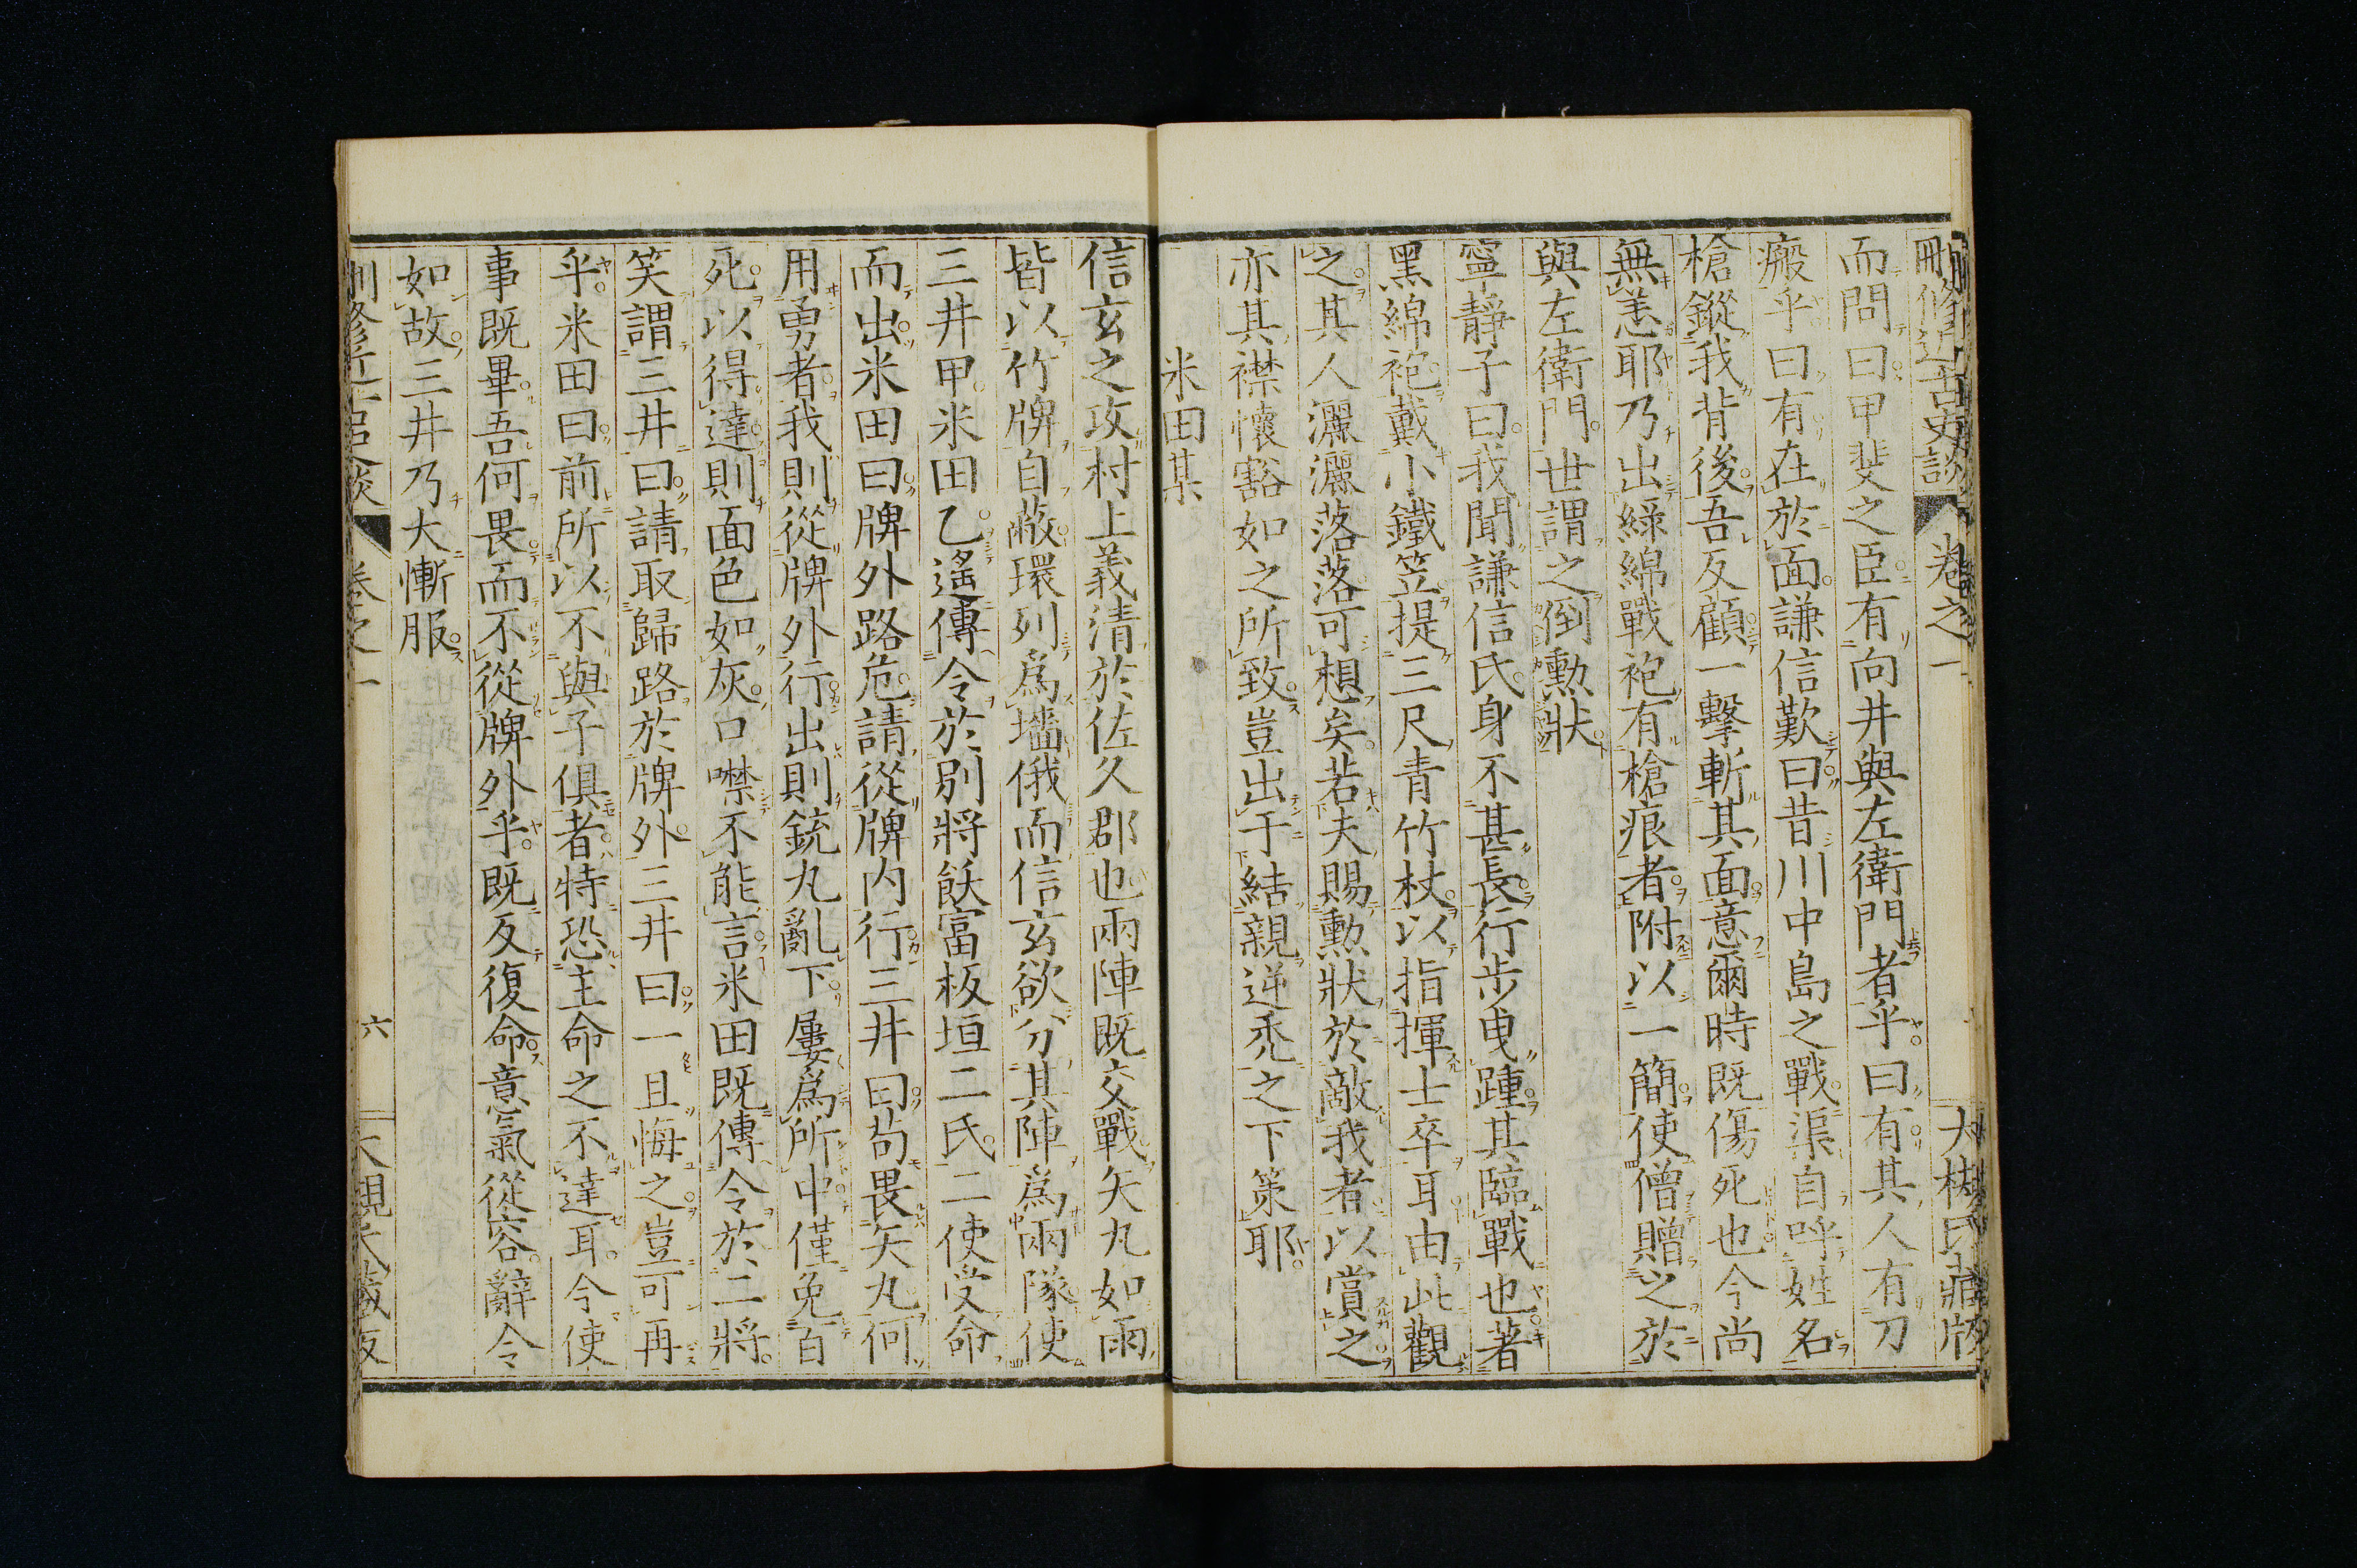 刪修近古史談 卷之一 大槻氏藏版
而問曰甲斐之臣有向井與左衛門者乎曰有其人有刀
瘢乎曰有在於面謙信歎曰昔川中島之戰渠自呼姓名
槍鏦我背後吾反顧一擊斬其面意爾時既傷死也今尚
無恙耶乃出綠綿戰袍有槍痕者附以一簡使僧贈之於
與左衛門世謂之倒勳狀
寧靜子曰我聞謙信氏身不甚長行步曳踵其臨戰也著
黑綿袍戴小鐵笠提三尺青竹杖以指揮士卒耳由此觀
之其人灑灑落落可想矣若夫賜勳狀於敵我者以賞之
亦其襟懷豁如之所致豈出于結親逆禿之下策耶
米田某
信玄之攻村上義清於佐久郡也兩陣既交戰矢丸如雨
皆以竹牌自蔽環列為墻俄而信玄欲分其陣為兩隊使
三井甲米田乙遙傳令於別將飫富板垣二氏二使受命
而出米田曰牌外路危請從牌內行三井曰苟畏矢丸何
用勇者我則從牌外行出則銃丸亂下屢為所中僅免百
死以得達則面色如灰口噤不能言米田既傳令於二將
笑謂三井曰請取歸路於牌外三井曰一且悔之豈可再
乎米田曰前所以不與子俱者特恐主命之不達耳今使
事既畢吾何畏而不從牌外乎既反復命意氣從容辭令
如故三井乃大慚服
刪修近古史談 卷之一 六 大槻氏藏版